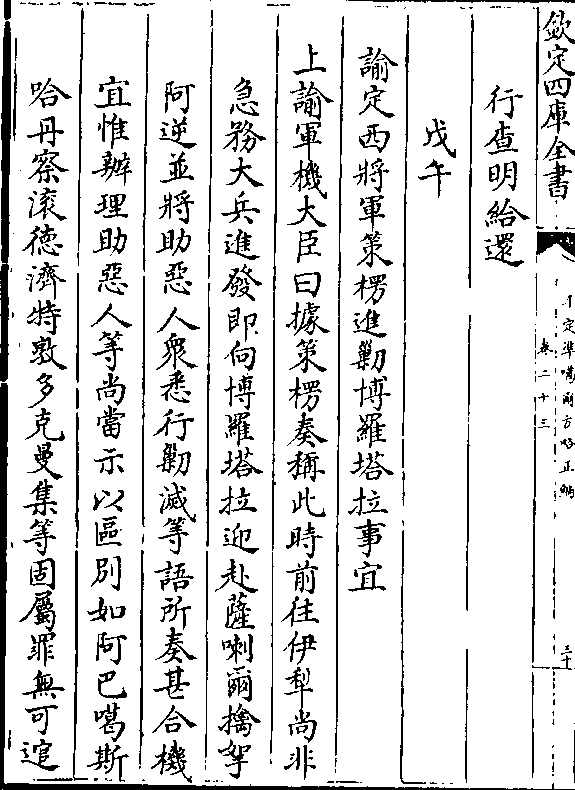 欽定四庫全書
平定準噶爾方略正編
卷二十三
三十
行查明給還
戊午
諭定西將軍策楞進勦博羅塔拉事宜
上諭軍機大臣曰據策楞奏稱此時前往伊犁尚非
急務大兵進發即向博羅塔拉迎赴薩喇爾擒拏
阿逆並將助惡人衆悉行勦滅等語所奏甚合機
宜惟辦理助惡人等尚當示以區別如阿巴噶斯
哈丹察滾德濟特敦多克曼集等固屬罪無可逭